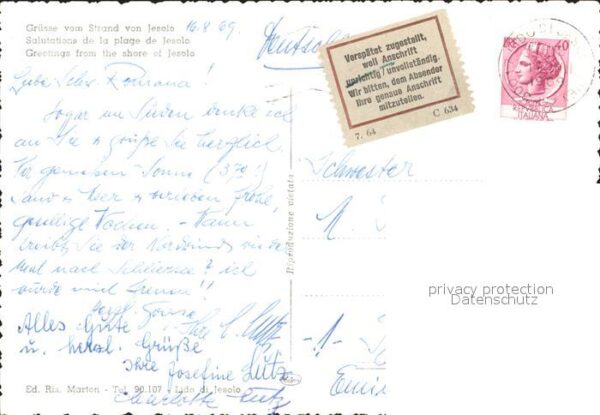 Grüsse vom Strand von Jesolo
Salutations de la plage de Jesolo
Greetings from the shore of Jesolo
16.8.69.
Liebe Schw. Romana!
Sogar im Süden denke ich
an Sie + grüße Sie herzlich.
Wir genießen Sonne (37°!)
Sand + Meer + verleben frohe,
gesellige Wochen. - Wann
treibt Sie der Nordwind wieder
mal nach Schliersee? ich
würde mich freuen!!
Alles Gute
u. herzl. Grüße
Ihre Josefine Lutz
Charlotte Lutz
Ed. Ris. Marton - Tel. 90.107 - Lido di Jesolo
Riproduzione vietata
Verspätet zugestellt,
weil Anschrift
unrichtig / unvollständig.
Wir bitten, dem Absender
Ihre genaue Anschrift
mitzuteilen.
7. 64 C 634
ITALIANA
Schwester
privacy protection
Datenschutz